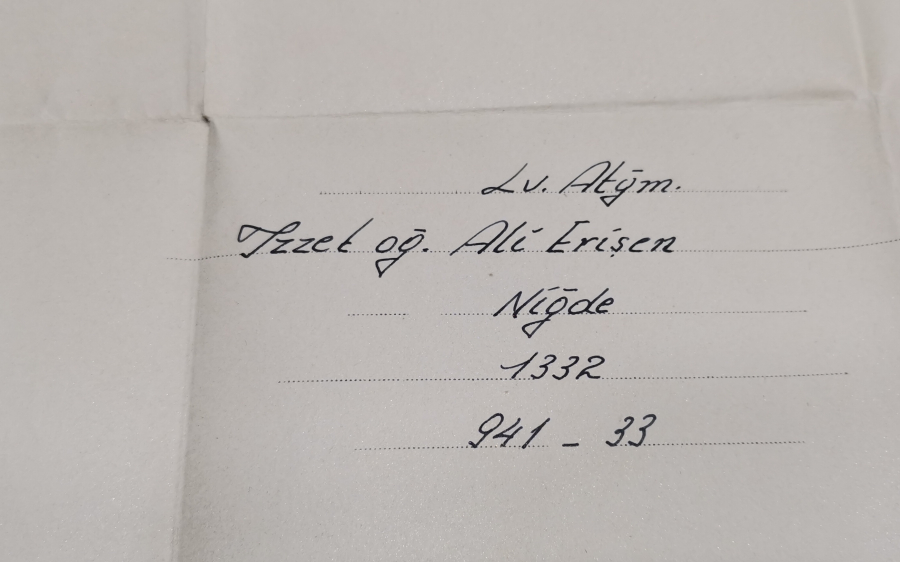 Lv. Atğm.
İzzet oğ. Ali Erişen
Niğde
1332
941 - 33